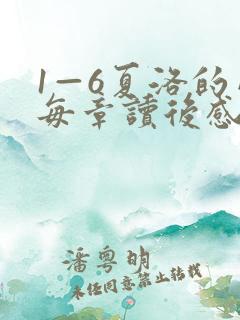 1—6夏洛的
每章讀後感
潘粤明
未经同意禁止转载